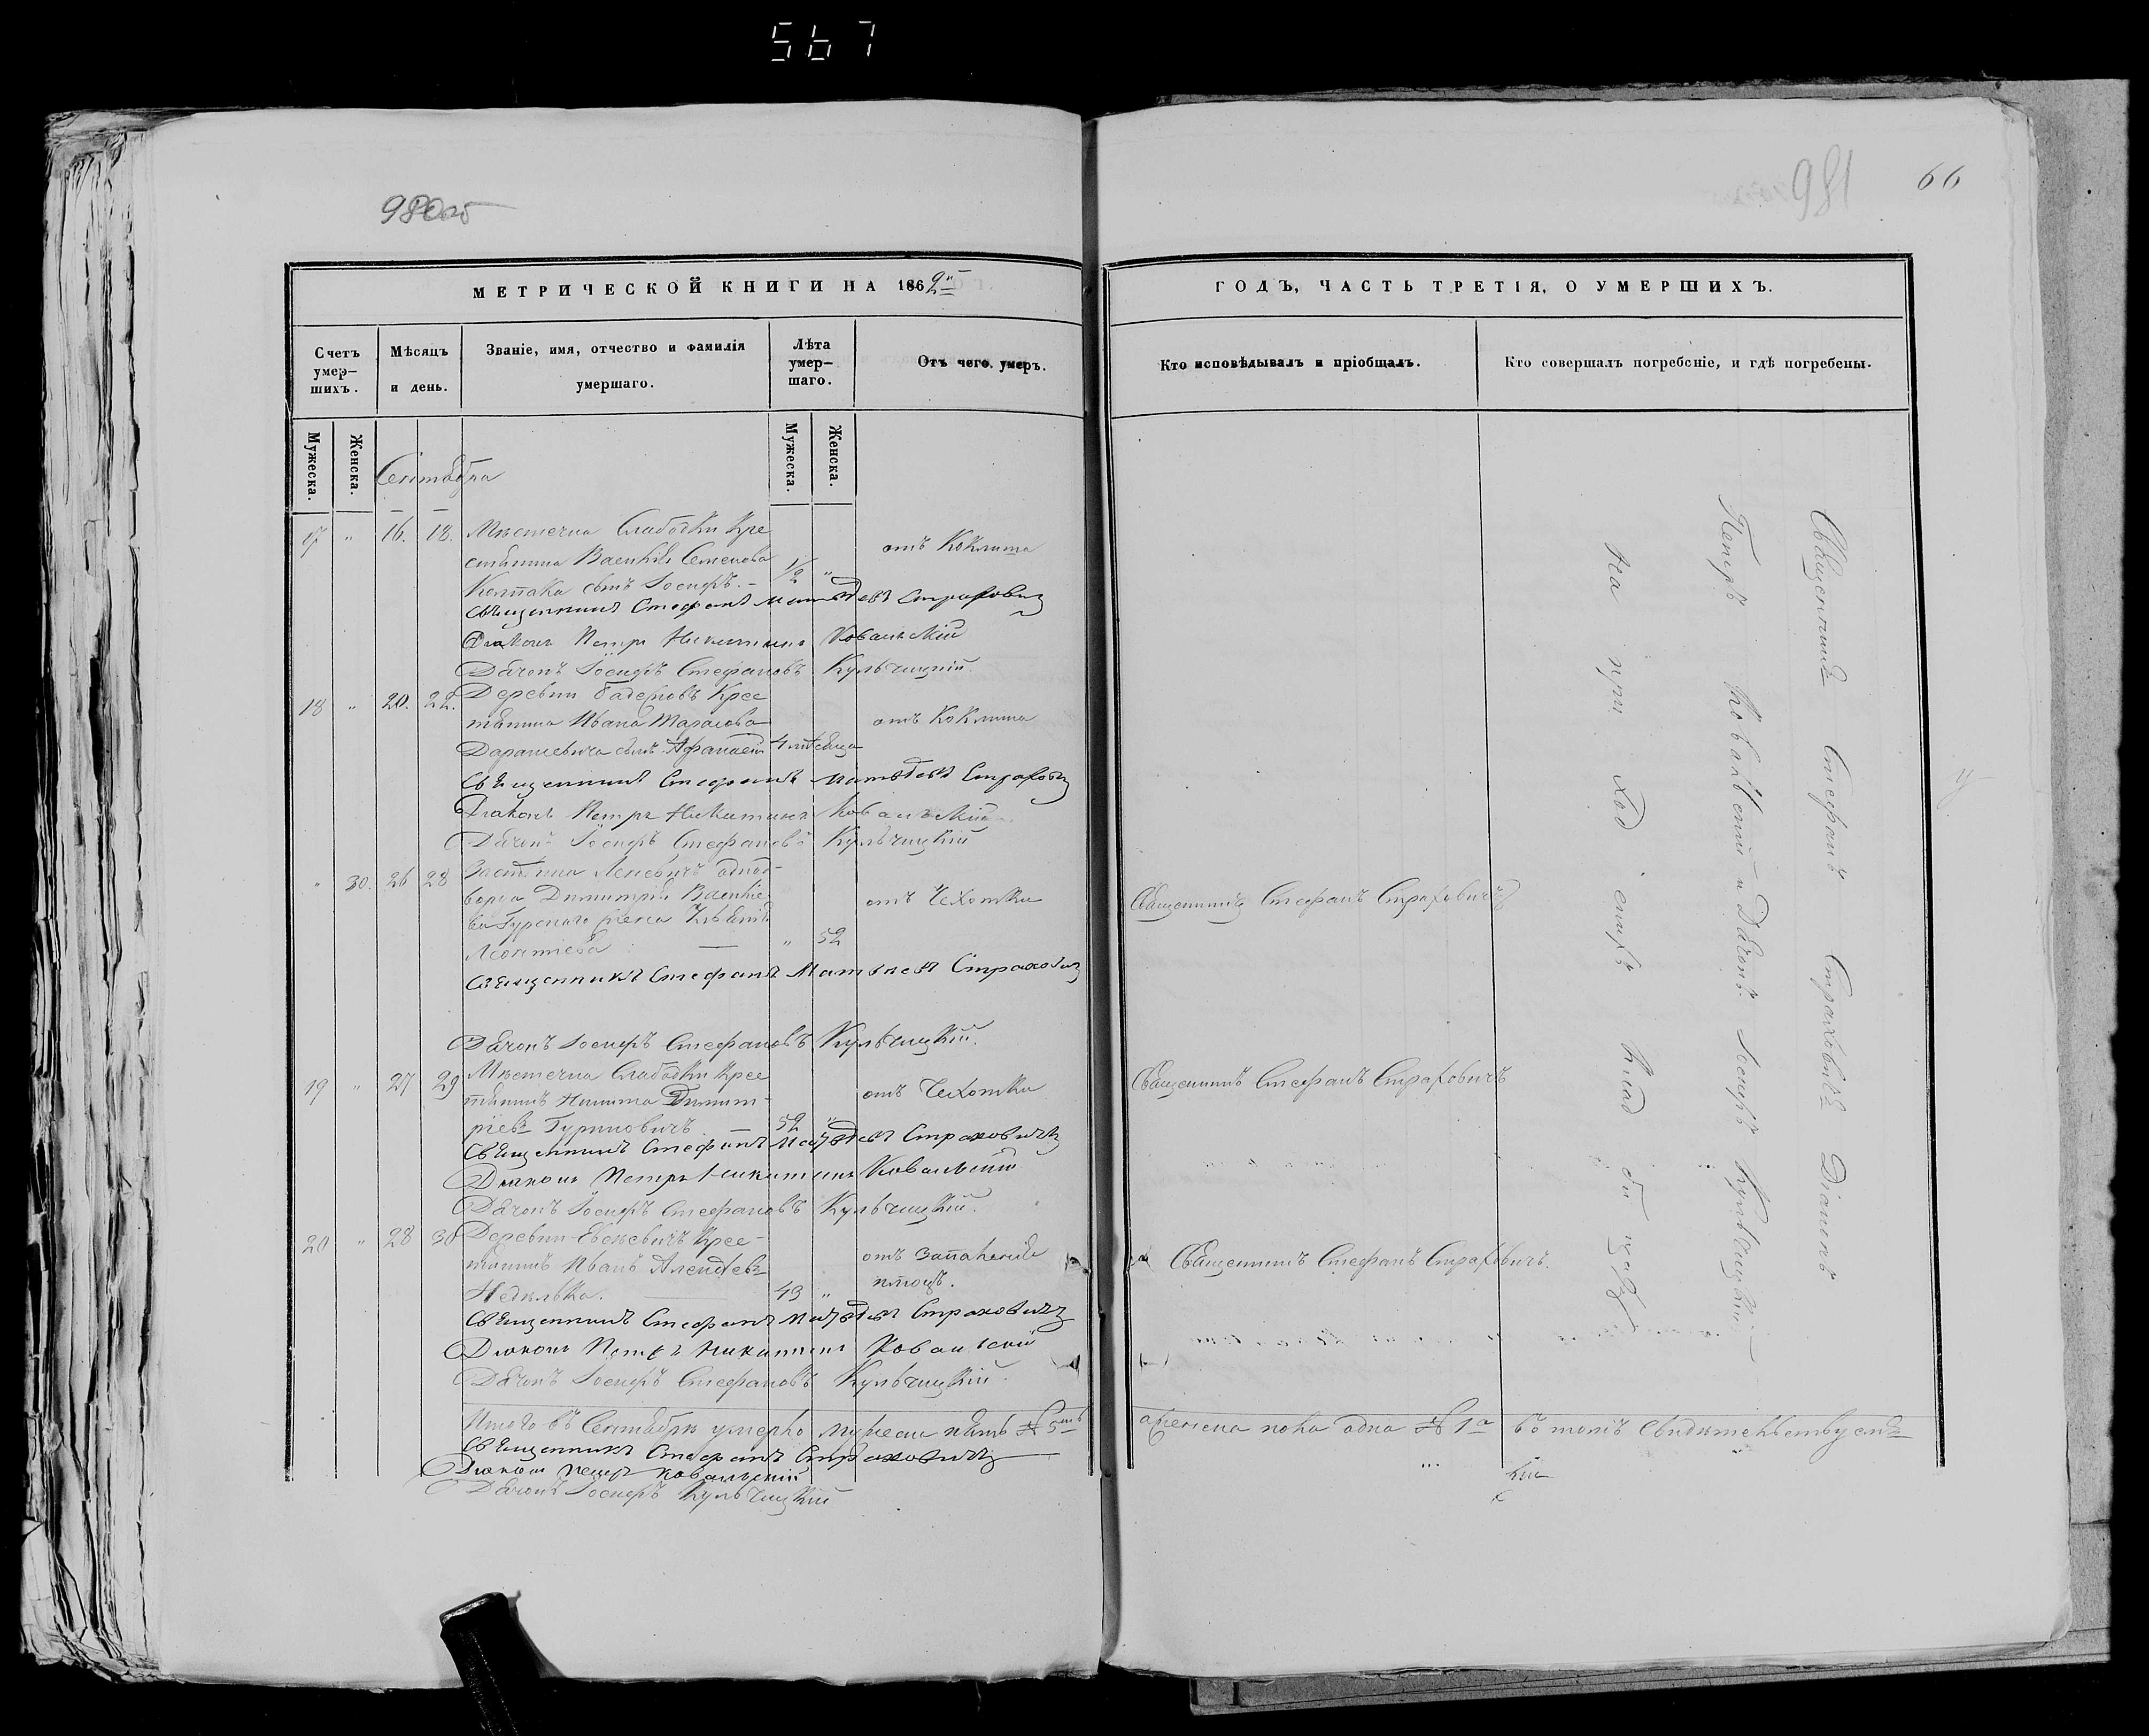 567
980об
МЕТРИЧЕСКОЙ КНИГИ НА 1862
Счетъ умер-шихъ.
Мѣсяцъ и день.
Званіе, имя, отчество и фамилія умершаго.
Лѣта умер-шаго.
Отъ чего умеръ.
Мужеска.
Женска.
Мужеска.
Женска.
Сентября
17 " 16. 18. Мѣстечка Слабодки Кре
стьянина Василія Семенова
отъ Коклюша
сынъ Іосифъ. 1/2 "
Священникъ Стефанъ Матвѣевъ Страхович
Діаконъ Петръ Никитинъ Ковальскій
Дьячокъ Іосифъ Стефановъ Кульчицкій.
18 " 20. 22. Деревни Крес
тьянина Ивана Тарасова
отъ Коклюша
сынъ Афанасій 4 мѣсяца
Священникъ Стефанъ Матвѣевъ Страхович
Діаконъ Петръ Никитинъ Ковальскій
Дьячокъ Іосифъ Стефановъ Кульчицкій
" 30. 26 28 однод-
ворца Димитрія Василіе
ва Гурскаго жена
отъ Чехотки
Леонтіева — " 52
Священникъ Стефанъ Матвѣевъ Страхович
Дьячокъ Іосифъ Стефановъ Кульчицкій.
19 " 27 29 Мѣстечка Слабодки Крес
тьянинъ Никита Димит-
отъ Чехотки
ріевъ Гуринович — 52 "
Священникъ Стефанъ Матвѣевъ Страхович
Діаконъ Петръ Никитинъ Ковальскій
Дьячокъ Іосифъ Стефановъ Кульчицкій.
20 " 28 30 Деревни Крес-
тьянинъ Иванъ Алексѣевъ
отъ
Недѣлька. 49 "
Священникъ Стефанъ Матвѣевъ Страхович
Діаконъ Петръ Никитинъ Ковальскій
Дьячокъ Іосифъ Стефановъ Кульчицкій.
Итого въ Сентябрѣ умерло мужеска пять № 5
Священникъ Стефанъ Страхович
Діаконъ Петръ Ковальскій
Дьячокъ Іосифъ Кульчицкій
981
66
ГОДЪ, ЧАСТЬ ТРЕТІЯ, О УМЕРШИХЪ.
Кто исповѣдывалъ и пріобщалъ.
Кто совершалъ погребеніе, и гдѣ погребены.
Священникъ Стефанъ Страховичъ
Священникъ Стефанъ Страховичъ
Священникъ Стефанъ Страховичъ.
Священникъ Стефанъ Страховичъ Діаконъ
Петръ Ковальскій и Дьячокъ Іосифъ Кульчицкій
на приходскихъ кладбищахъ
а женска пола одна № 1 въ томъ свидѣтельствуемъ